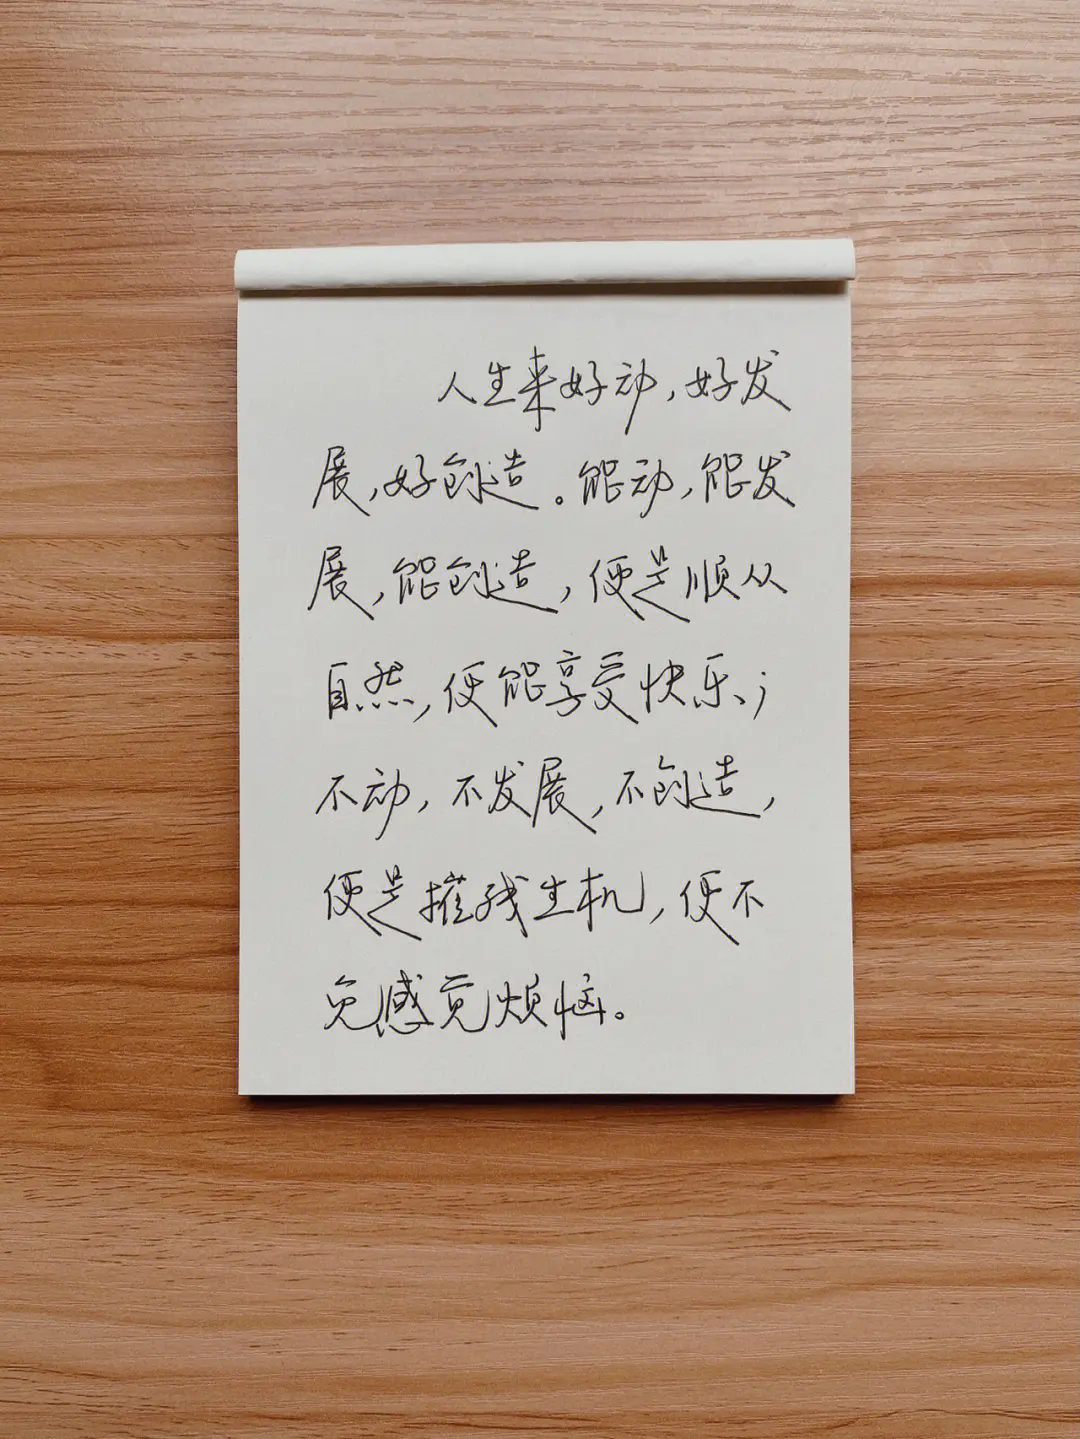 人生来好动，好发
展，好创造。能动，能发
展，能创造，便是顺从
自然，便能享受快乐；
不动，不发展，不创造，
便是摧残生机，便不
免感觉烦恼。